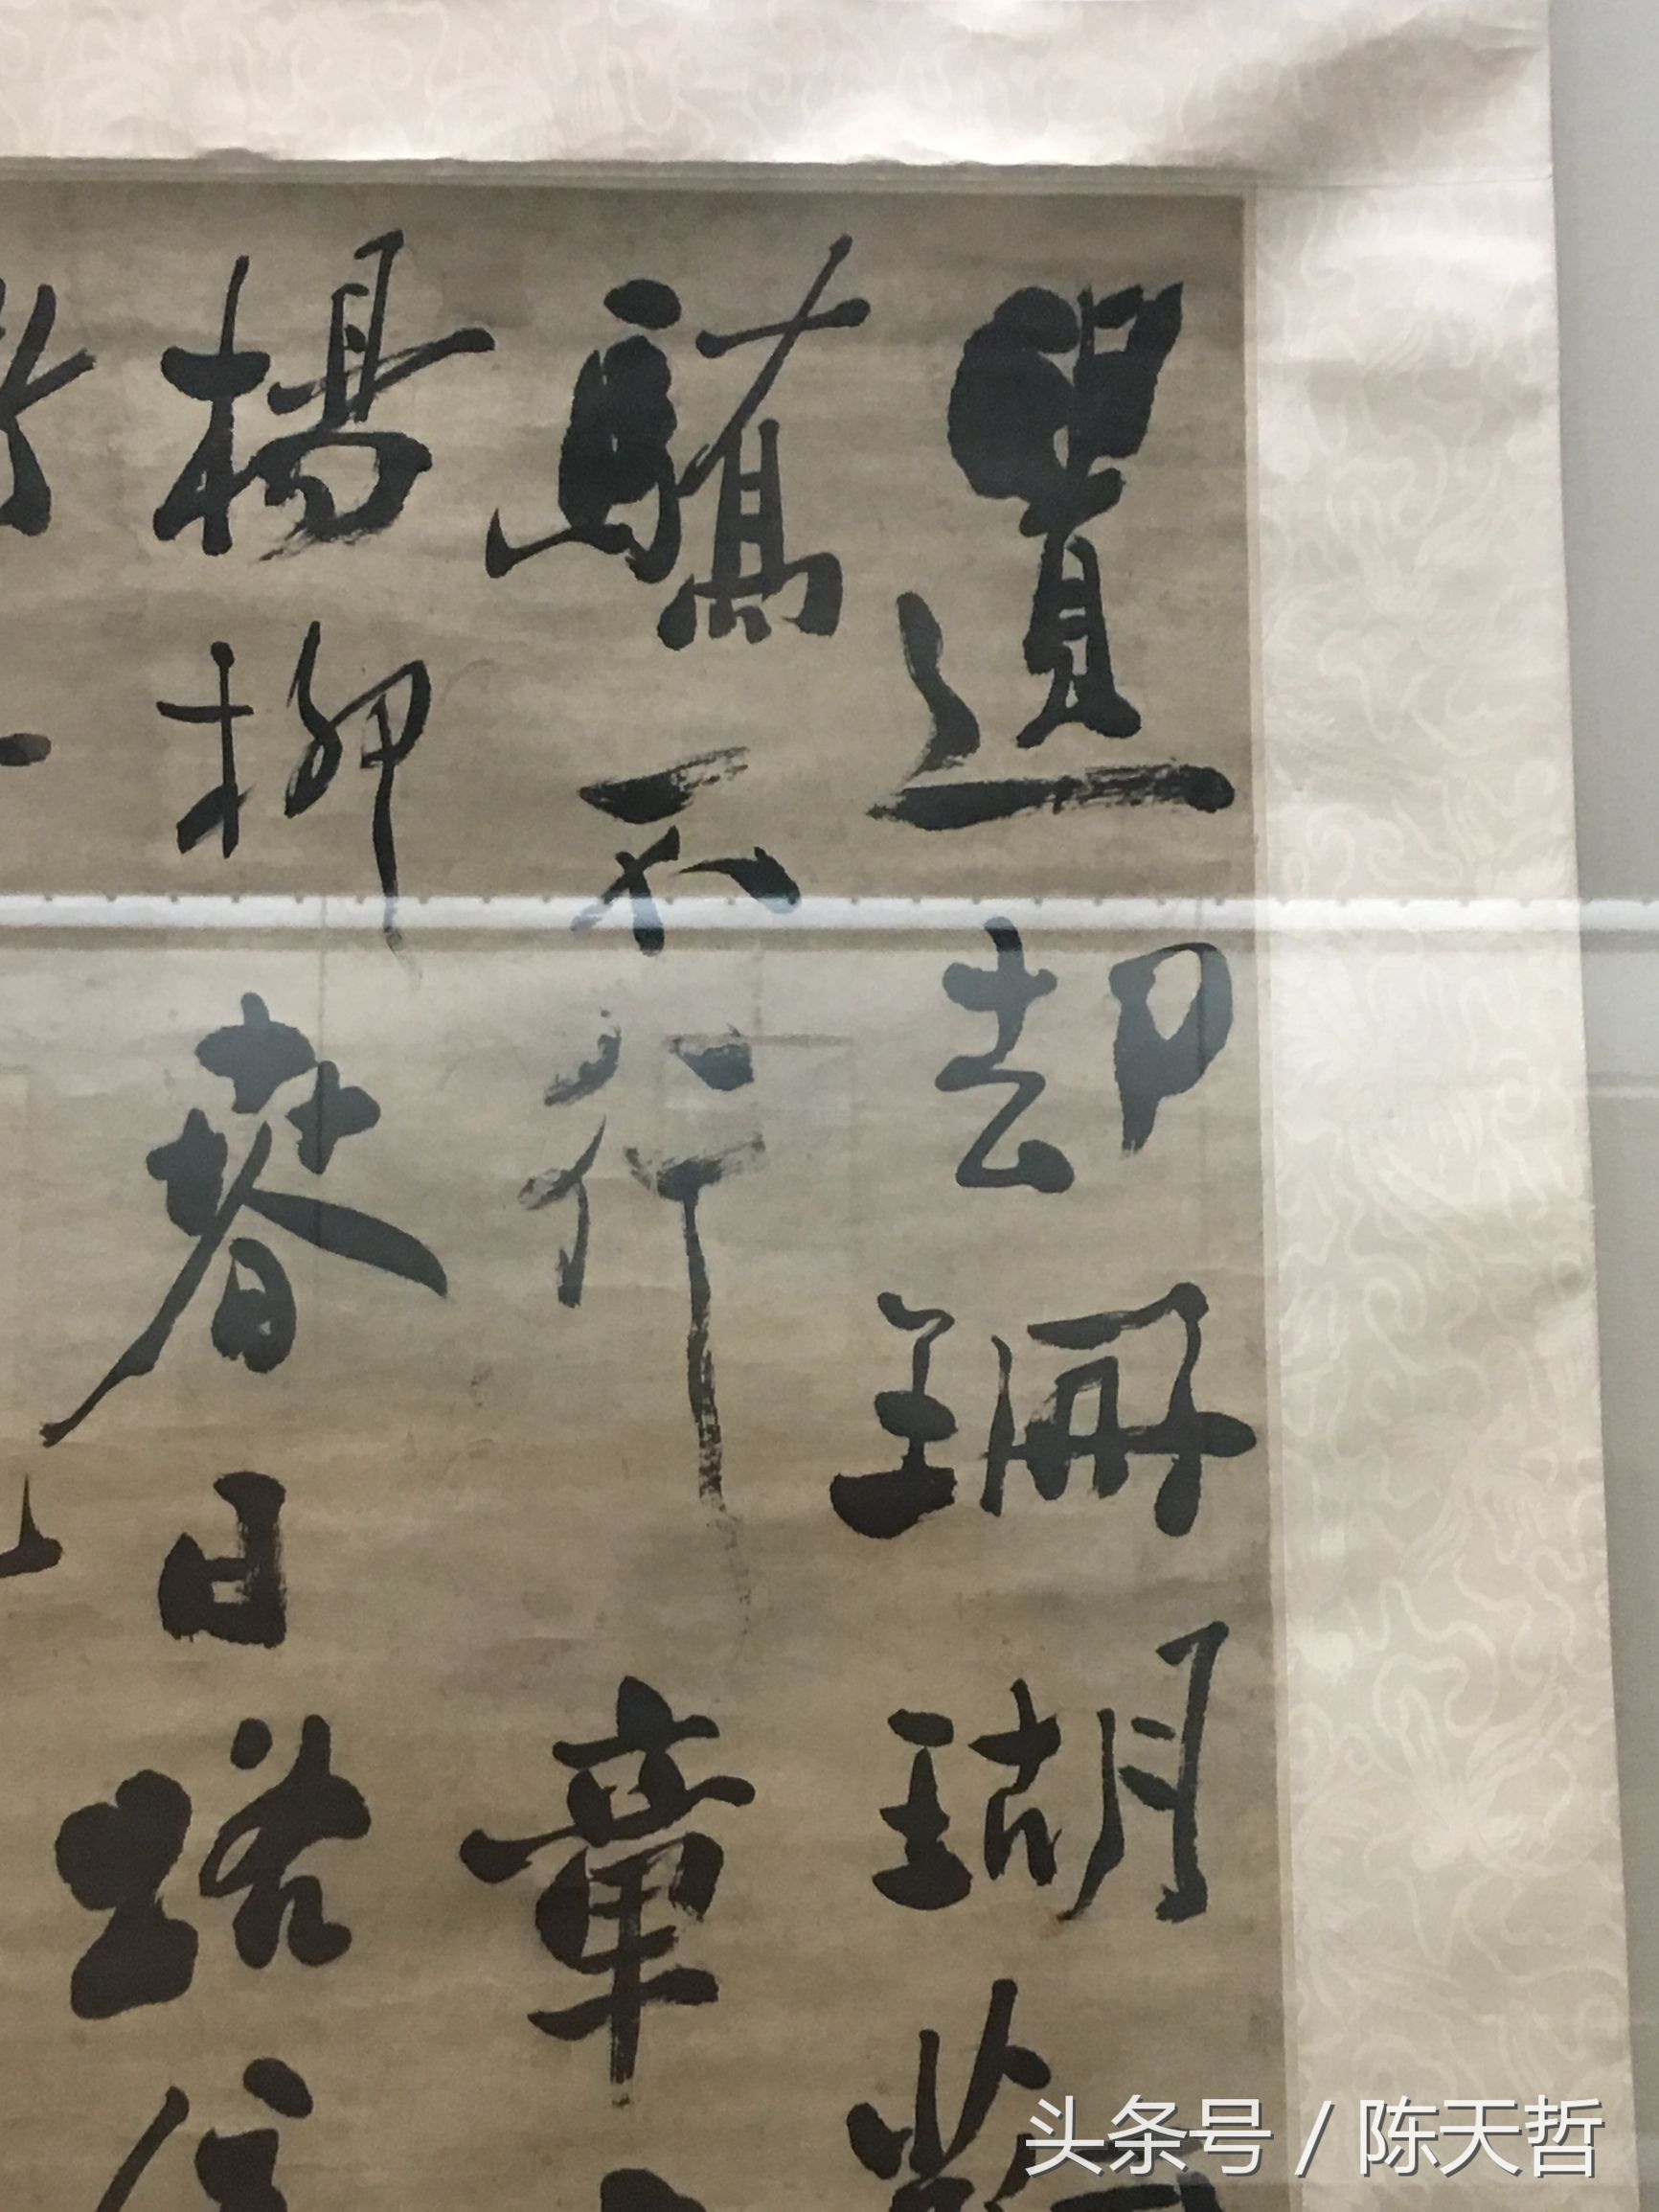 遺却珊瑚鞭
驕不行章
楊柳春日路
头条号 / 陈天哲